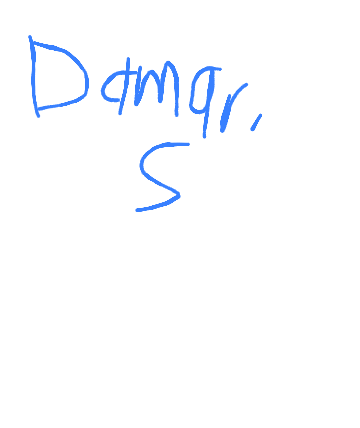 Damar,
S